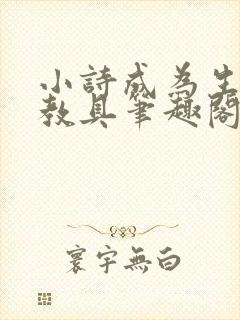 小詩成為生
教具筆趣閣
寰宇無白